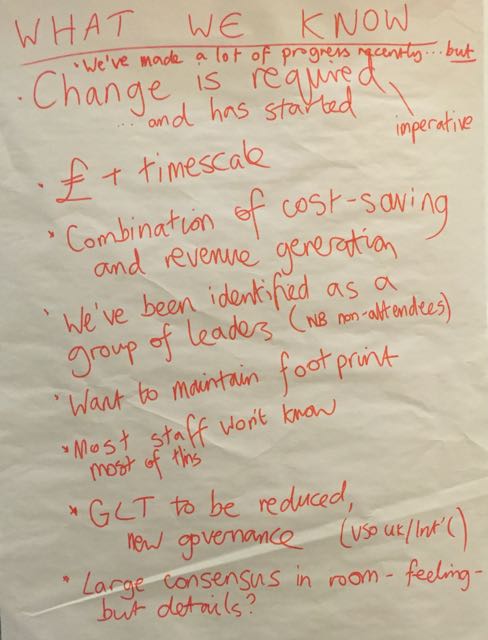 WHAT WE KNOW
• We've made a lot of progress recently... but
• Change is required
... and has started
imperative
• £ + timescale
• Combination of cost-saving
and revenue generation
• We've been identified as a
group of leaders (NB non-attendees)
• Want to maintain footprint
• Most staff won't know
most of this
• GLT to be reduced,
new governance (VSO UK/Int'l)
• Large consensus in room - feeling -
but details?